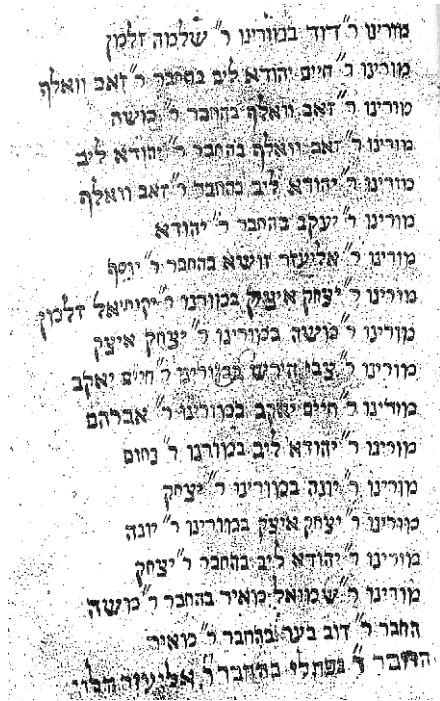 מורינו ר" דוד במורינו ר" שלמה זלמן
מורינו ר" חיים יהודא ליב בהחבר ר" זאב וואלף
מורינו ר" זאב וואלף בהחבר ר" מושה
מורינו ר" זאב וואלף בהחבר ר" יהודא ליב
מורינו ר" יהודא ליב בהחבר ר" זאב וואלף
מורינו ר" יעקב בהחבר ר" יהודא
מורינו ר" אליעזר זושיא בהחבר ר" יוסף
מורינו ר" יצחק איציק במורנו ר" יקותיאל זלמון
מורינו ר" מושה במורינו ר" יצחק איציק
מורינו ר" צבי הירש במורינו ר" חיים יאקב
מורינו ר" חיים יאקב במורינו ר" אברהם
מורינו ר" יהודא ליב במורנו ר" נחום
מורינו ר" יונה במורינו ר" יצחק
מורינו ר" יצחק איצק במורינו ר" יונה
מורינו ר" יהודא ליב בהחבר ר" יצחק
מורינו ר" שמואל מאיר בהחבר ר" מושה
החבר ר" דוב בער בהחבר ר" מאיר
החבר ר" נפתלי בהחבר ר" אליעזר הלוי